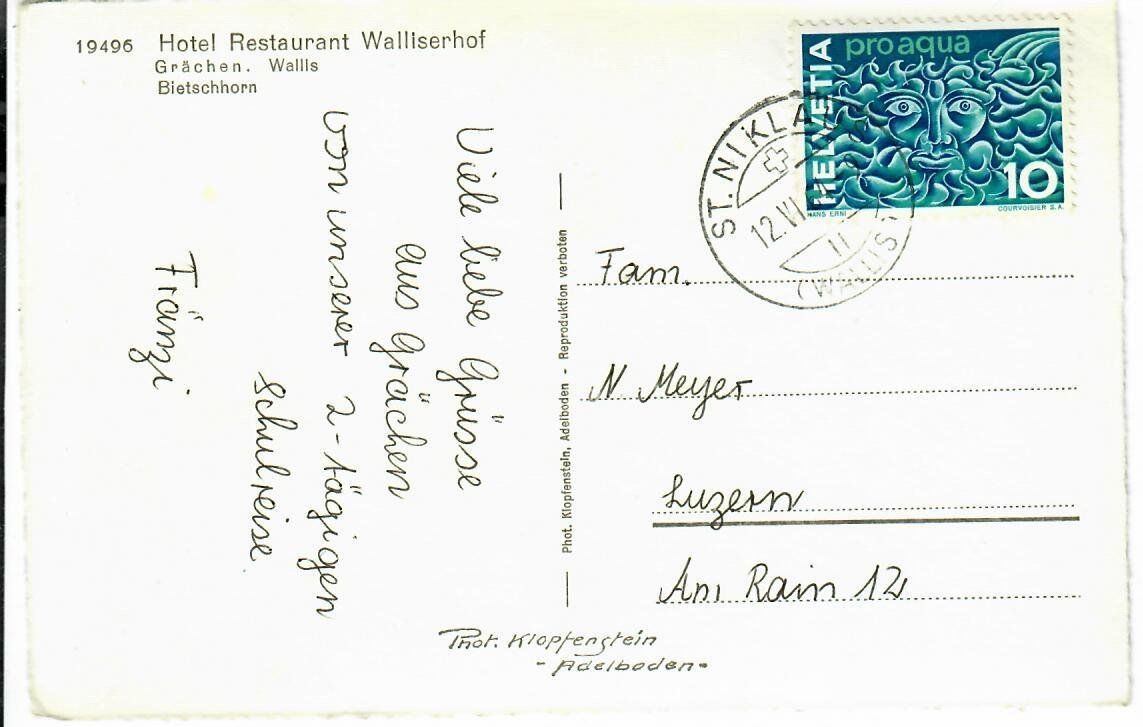 19496 Hotel Restaurant Walliserhof
Grächen. Wallis
Bietschhorn
Viele liebe Grüsse
aus Grächen
von unserer 2-tägigen
Schulreise
Fränzi
Phot. Klopfenstein, Adelboden - Reproduktion verboten
Phot. Klopfenstein
- Adelboden -
HELVETIA
pro aqua
10
HANS ERNI
COURVOISIER S.A.
ST. NIKLAUS
12.VI
(WALLIS)
Fam.
N. Meyer
Luzern
Am Rain 12